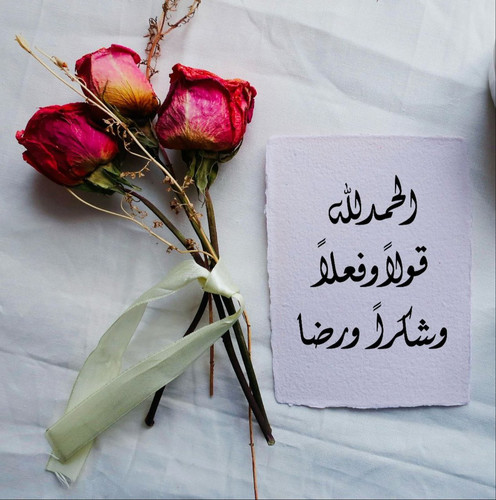 الحمدلله
قولاً وفعلاً
وشكراً ورضا